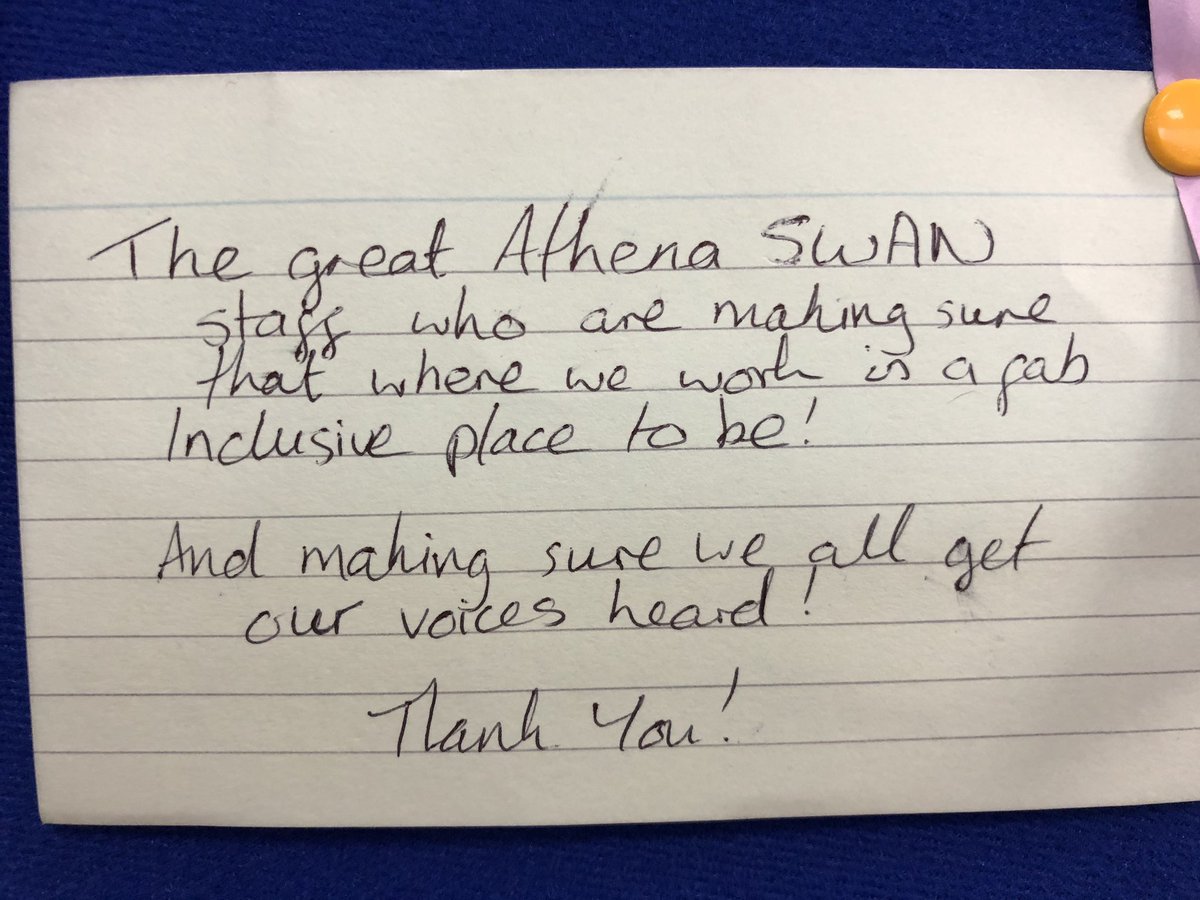 The great Athena SWAN
staff who are making sure
that where we work is a fab
Inclusive place to be!
And making sure we all get
our voices heard!
Thank You!